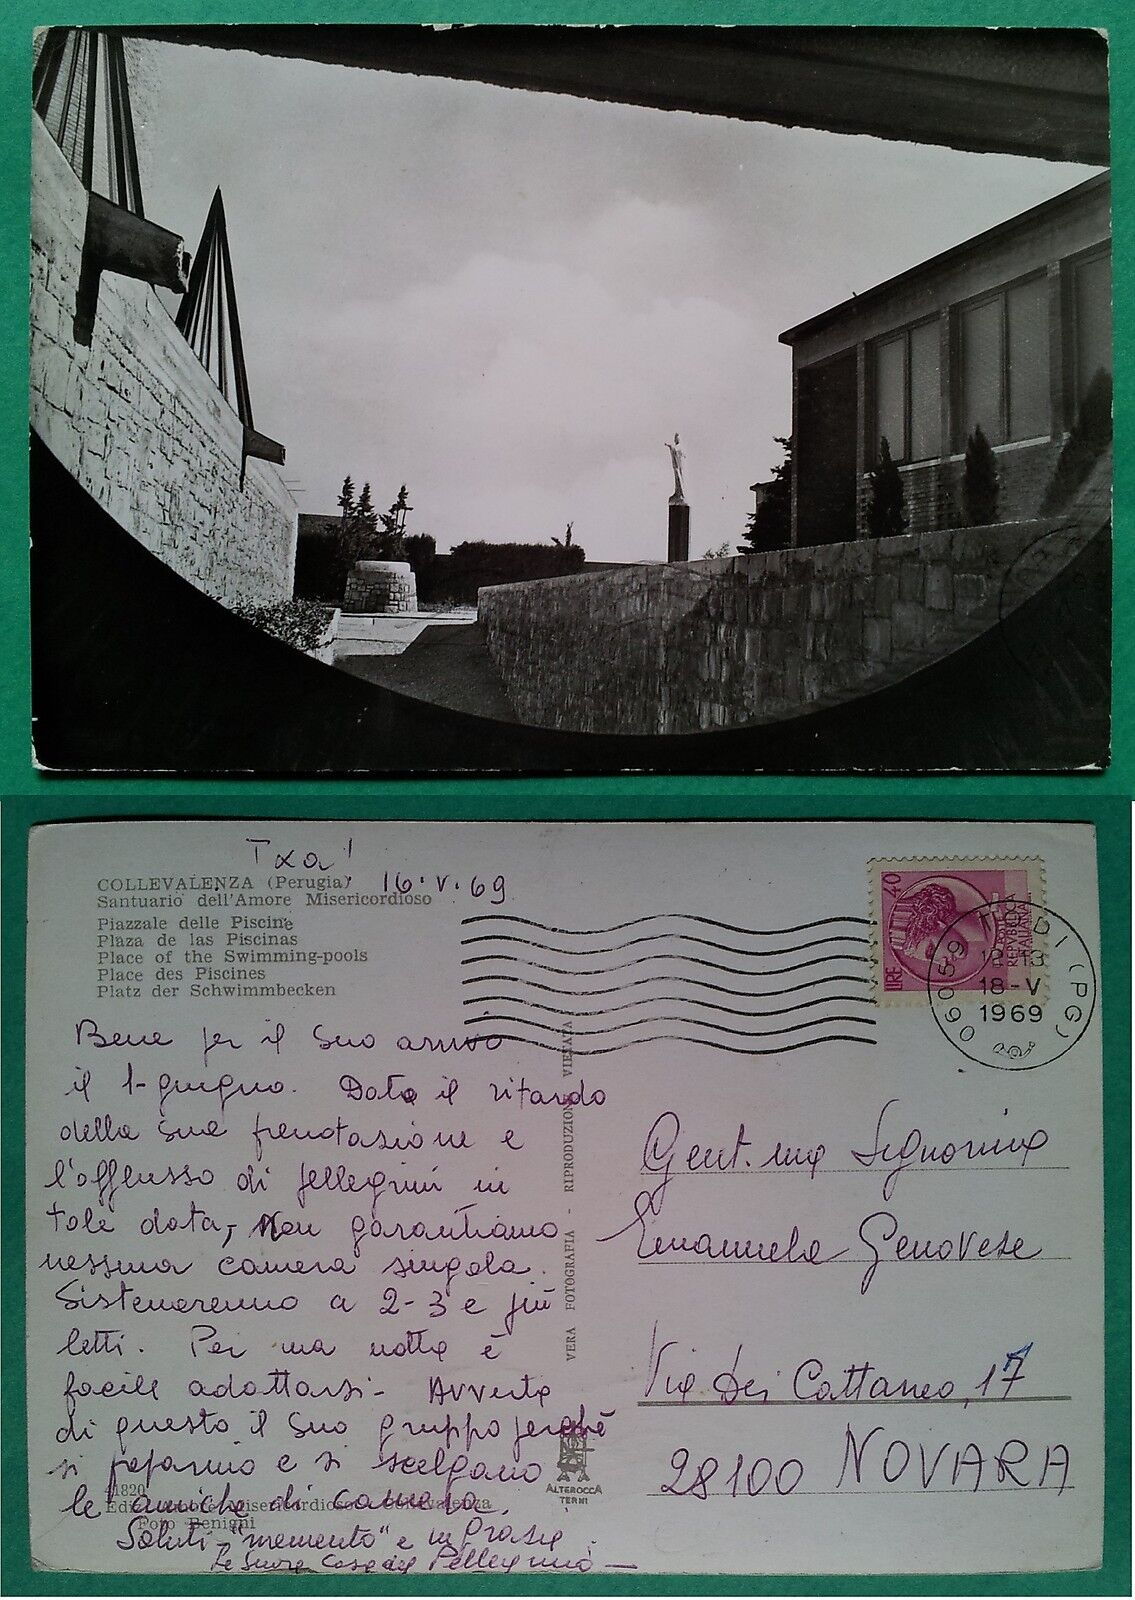 Txa!
COLLEVALENZA (Perugia) 16.V.69
Santuario dell'Amore Misericordioso
Piazzale delle Piscine
Plaza de las Piscinas
Place of the Swimming-pools
Place des Piscines
Platz der Schwimmbecken
LIRE 40
POSTE
REPVBBLICA
ITALIANA
06059 TODI (PG)
12-13
18-V
1969
Bene per il Suo arrivo
il 1-giugno. Data il ritardo
della sua prenotazione e
l'afflusso di pellegrini in
tale data, Non garantiamo
nessuna camera singola.
Sistemeremo a 2-3 e più
letti. Per una notte è
facile adattarsi- Avverta
di questo il Suo gruppo perchè
si preparino e si scelgano
le amiche di camera.
Saluti, "memento" e in
Le Suore Casa del Pellegrino
1820
Ediz. Amore Misericordioso - Collevalenza
Foto Benigni
VERA FOTOGRAFIA - RIPRODUZIONE VIETATA
ALTEROCCA
TERNI
Gent.ma Signorina
Emanuela Genovese
Via Dei Cattaneo, 17
28100 NOVARA